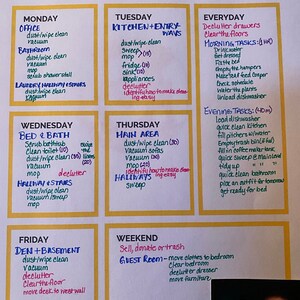 MONDAY
OFFICE
dust/wipe clean
vacuum
BATHROOM
dust/wipe clean
vacuum
mop
scrub shower stall
LAUNDRY, HALLWAY & STAIRS
dust/wipe clean
vacuum
TUESDAY
KITCHEN + ENTRY-
WAYS
dust/wipe clean
sweep
mop
fridge
sink
appliances
declutter
identify how to make this
EVERYDAY
Declutter drawers
Clear the floors
MORNING TASKS:
Drink water
Get dressed
Fix the bed
Empty the hampers
Make
Water the plants
Unload dishwasher
EVENING TASKS:
Load dishwasher
quick clean kitchen
fill pitchers w/ water
Empty trash
fill in coffee water tank
quick sweep
tidy up
quick clean bathroom
plan an outfit for tomorrow
get ready for bed
WEDNESDAY
BED & BATH
Scrub bathtub
Clean toilet
dust/wipe clean
vacuum
mop
HALLWAY & STAIRS
dust/wipe clean
vacuum/sweep
mop
THURSDAY
MAIN AREA
dust/wipe clean
Vacuum sofas
vacuum
mop
identify how to make this
HALLWAYS
sweep
FRIDAY
DEN + BASEMENT
dust/wipe clean
Vacuum
declutter
Clear the floor
move desk to west wall
WEEKEND
Sell, donate or trash
GUEST ROOM - move clothes to bedroom
Clear bedroom
declutter dresser
move furniture